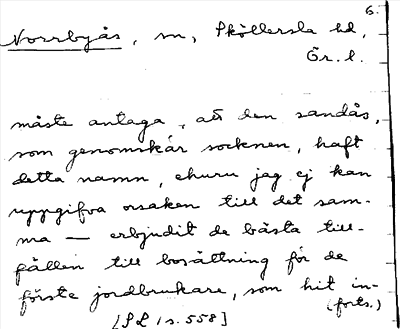 6.
Norrbyås, sn, Sköllersta hd,
Ör. l.
måste antaga, att den sandås,
som genomskär socknen, haft
detta namn, ehuru jag ej kan
uppgifva orsaken till det sam-
ma — erbjudit de bästa till-
fällen till bosättning för de
förste jordbrukare, som hit in-
(forts.)
[SL 1 s. 558]